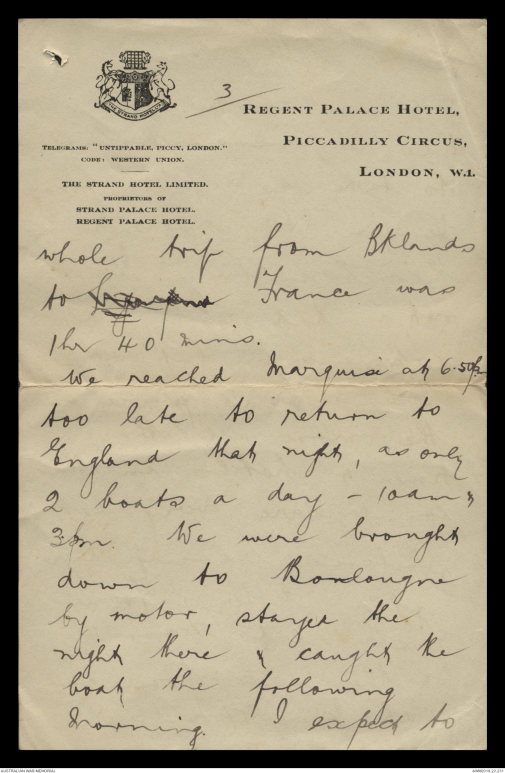 3
THE STRAND HOTEL LTD
REGENT PALACE HOTEL,
PICCADILLY CIRCUS,
LONDON, W.1.
TELEGRAMS: "UNTIPPABLE, PICCY, LONDON."
CODE: WESTERN UNION.
THE STRAND HOTEL LIMITED.
PROPRIETORS OF
STRAND PALACE HOTEL.
REGENT PALACE HOTEL.
whole trip from Bklands
to France was
1 hr 40 mins.
We reached Marquise at 6.50pm
too late to return to
England that night, as only
2 boats a day - 10am &
3pm. We were brought
down to Bonlougne
by motor, stayed the
night there & caught the
boat the following
morning. I expect to
AUSTRALIAN WAR MEMORIAL